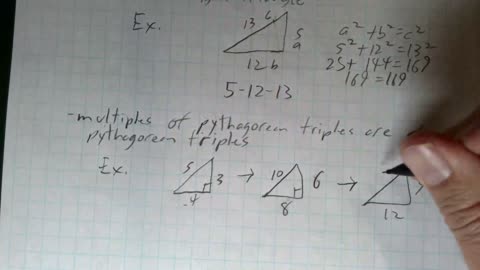 Ex.
13 c
5
a
12 b
5-12-13
a² + b² = c²
5² + 12² = 13²
25 + 144 = 169
169 = 169
-multiples of pythagorean triples are
pythagorean triples
Ex.
5
3
4
→
10
6
8
→
12